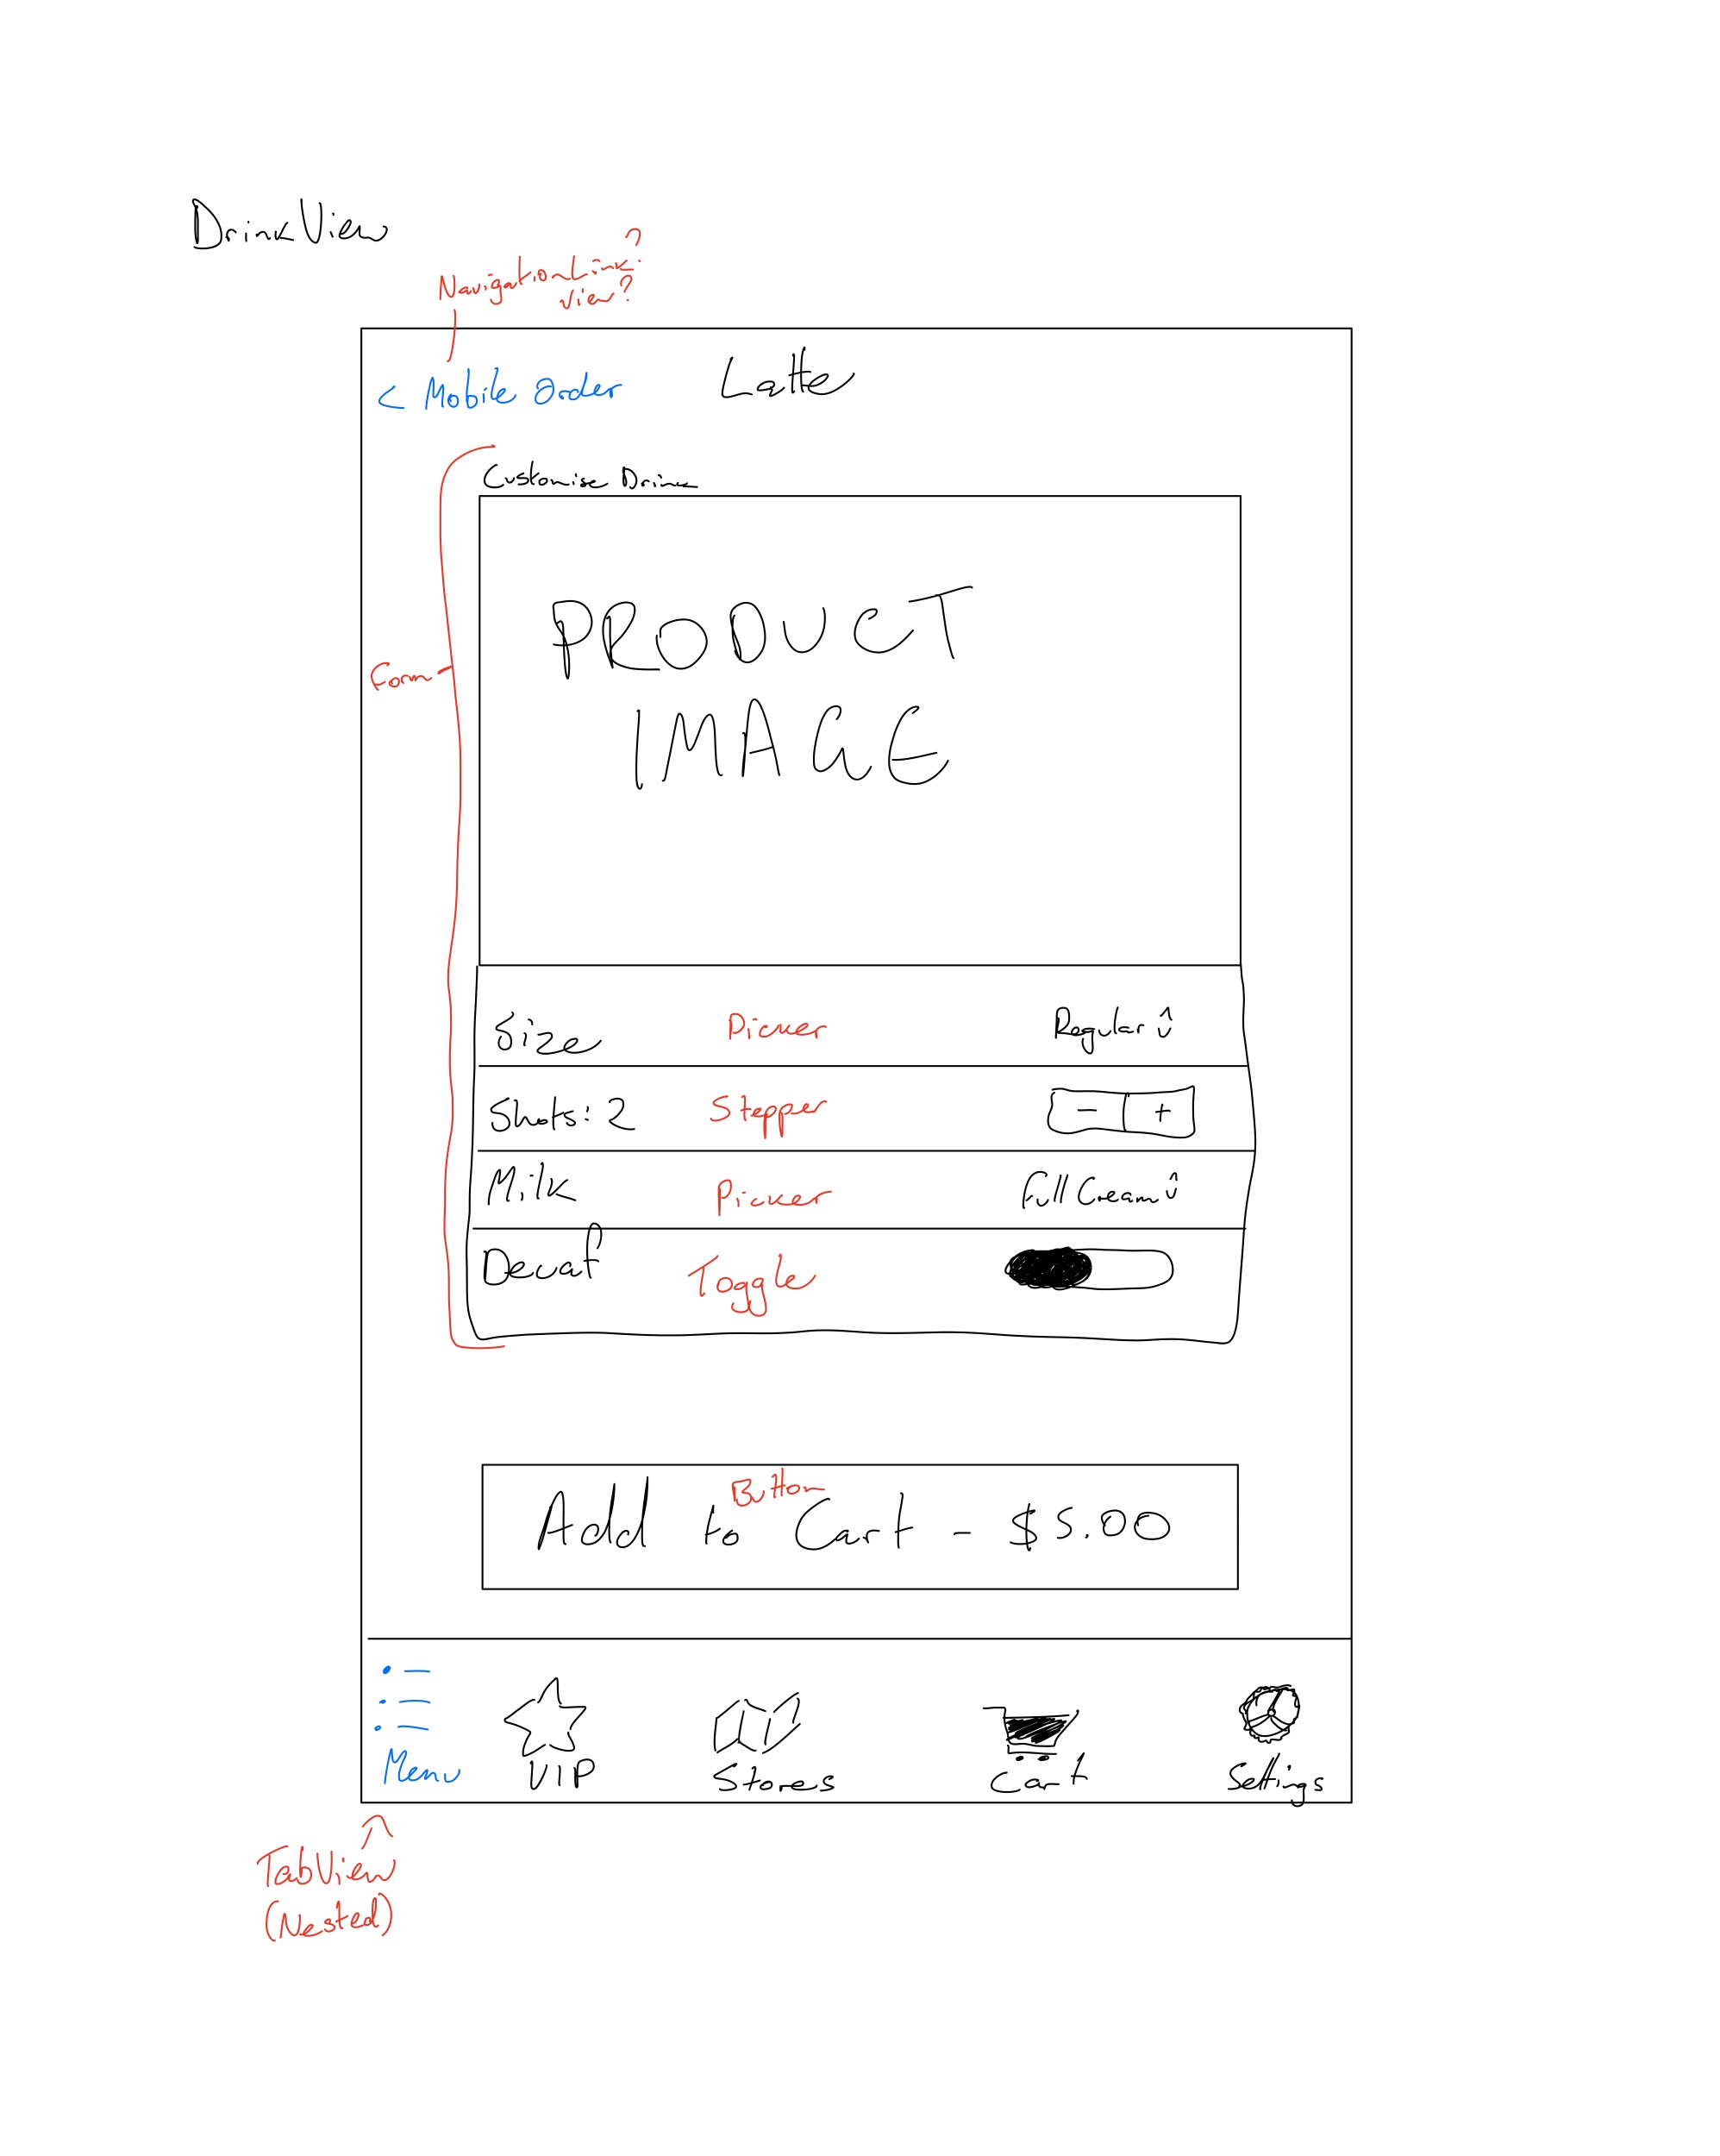 DrinkView
NavigationLink?
View?
< Mobile Order
Latte
Customise Drink
PRODUCT
IMAGE
Form
Size Picker Regular
Shots: 2 Stepper - +
Milk Picker Full Cream
Decaf Toggle
Button
Add to Cart - $5.00
Menu VIP Stores Cart Settings
TabView
(Nested)